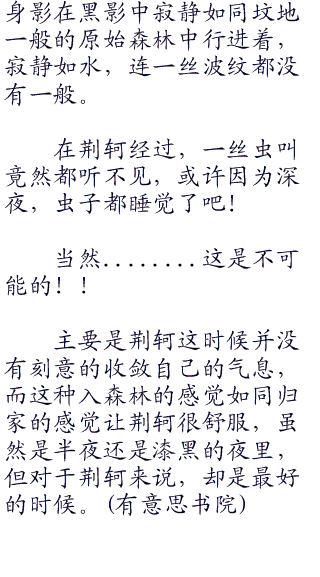 身影在黑影中寂静如同坟地
一般的原始森林中行进着，
寂静如水，连一丝波纹都没
有一般。
在荆轲经过，一丝虫叫
竟然都听不见，或许因为深
夜，虫子都睡觉了吧！
当然........这是不可
能的！！
主要是荆轲这时候并没
有刻意的收敛自己的气息，
而这种入森林的感觉如同归
家的感觉让荆轲很舒服，虽
然是半夜还是漆黑的夜里，
但对于荆轲来说，却是最好
的时候。(有意思书院)